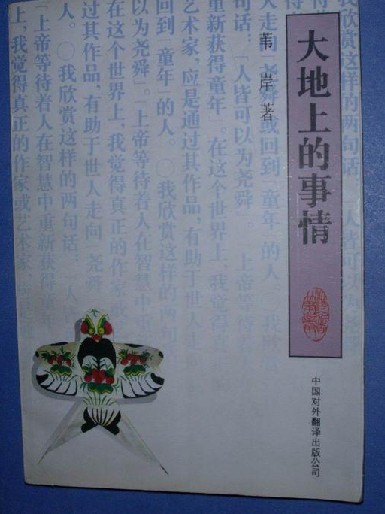 大地上的事情
苇岸 著
中国对外翻译出版公司
我欣赏这样的两句话
人走向「尧舜」或回到「童年」的人
「人皆可以为尧舜」。「上帝
重新获得童年」。在这个世界上,我觉得
艺术家,应是通过其作品,有助于世人走
回到「童年」的人。〇我欣赏这样的两句
以为尧舜」。「上帝等待着人在智慧中
在这个世界上,我觉得真正的作家
过其作品,有助于世人走向「尧舜
的人。〇我欣赏这样的两句话 人
「上帝等待着人在智慧中重新获得
上,我觉得真正的作家或艺术家